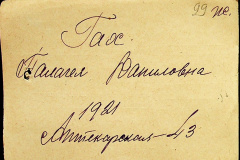 99 ж.
Гах.
Палагея Даниловна
1921
Аптекарская-43